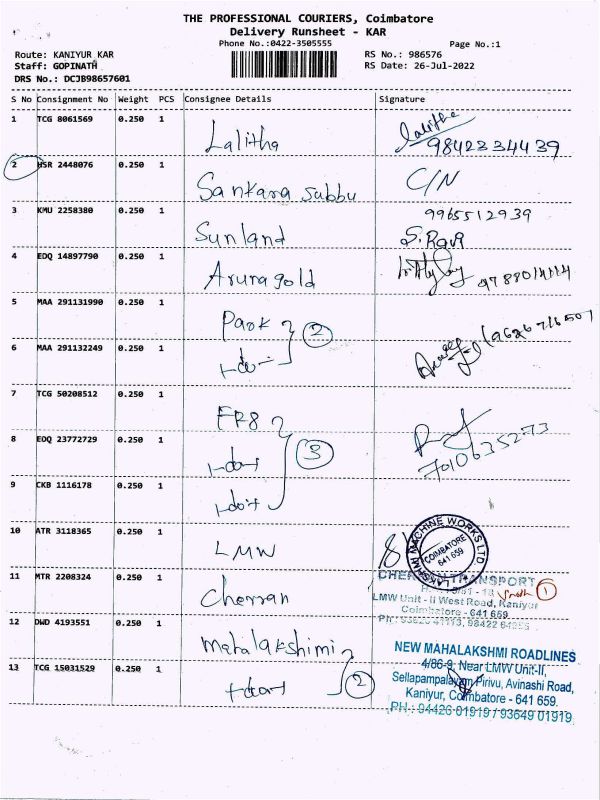 THE PROFESSIONAL COURIERS, Coimbatore
Delivery Runsheet - KAR
Phone No.:0422-3505555
Page No.:1
Route: KANIYUR KAR
RS No.: 986576
Staff: GOPINATH
RS Date: 26-Jul-2022
DRS No.: DCJB98657601
S No Consignment No Weight PCS Consignee Details Signature
1 TCG 8061569 0.250 1 Lalitha Lalitha
9842334439
2 HSR 2448076 0.250 1 Sankara subbu C/N
3 KMU 2258380 0.250 1 Sunland 9965512939
S. Ravi
4 EDQ 14897790 0.250 1 Aruna gold
5 MAA 291131990 0.250 1 Park 2
6 MAA 291132249 0.250 1
7 TCG 50208512 0.250 1 FR8
8 EDQ 23772729 0.250 1 3
7010635273
9 CKB 1116178 0.250 1
10 ATR 3118365 0.250 1 LMW
LAKSHMI MACHINE WORKS LTD
COIMBATORE
641 659
11 MTR 2208324 0.250 1 Cherran
CHERRAN TRANSPORT
1
LMW Unit - II West Road, Kaniyur
Coimbatore - 641 659
12 DWD 4193551 0.250 1 Mahalakshimi
13 TCG 15031529 0.250 1 2
NEW MAHALAKSHMI ROADLINES
4/86-9, Near LMW Unit-II,
Sellapampalayam Pirivu, Avinashi Road,
Kaniyur, Coimbatore - 641 659.
PH.: 94426 01919 / 93649 01919